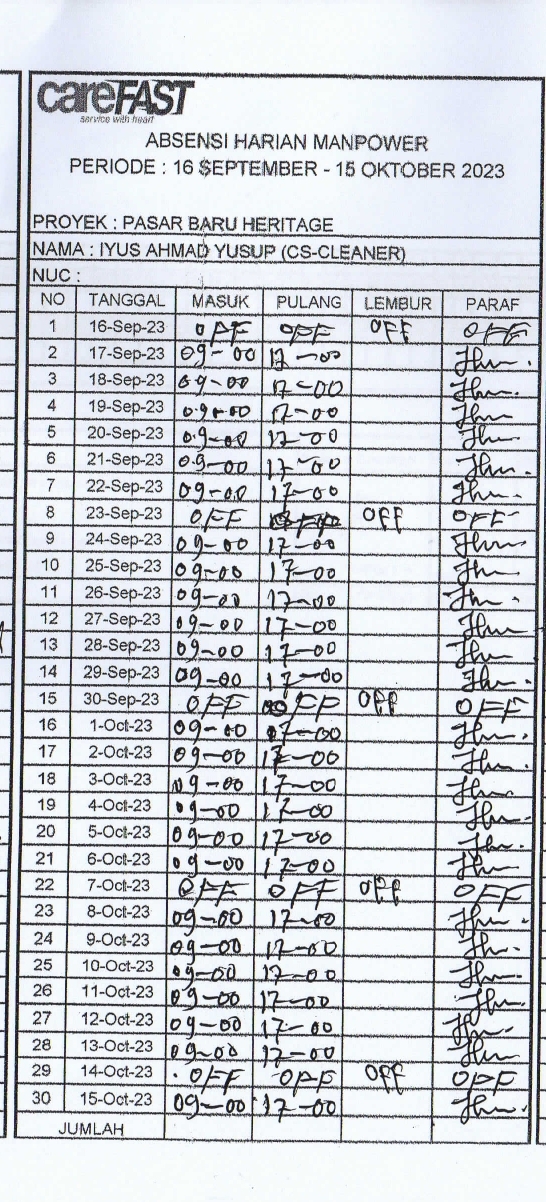 careFAST
service with heart
ABSENSI HARIAN MANPOWER
PERIODE : 16 SEPTEMBER - 15 OKTOBER 2023
PROYEK : PASAR BARU HERITAGE
NAMA : IYUS AHMAD YUSUP (CS-CLEANER)
NUC :
NO TANGGAL MASUK PULANG LEMBUR PARAF
1 16-Sep-23 OFF OFF OFF OFF
2 17-Sep-23 09-00 17-00
3 18-Sep-23 09-00 17-00
4 19-Sep-23 09-00 17-00
5 20-Sep-23 09-00 17-00
6 21-Sep-23 09-00 17-00
7 22-Sep-23 09-00 17-00
8 23-Sep-23 OFF OFF OFF OFF
9 24-Sep-23 09-00 17-00
10 25-Sep-23 09-00 17-00
11 26-Sep-23 09-00 17-00
12 27-Sep-23 09-00 17-00
13 28-Sep-23 09-00 17-00
14 29-Sep-23 09-00 17-00
15 30-Sep-23 OFF OFF OFF OFF
16 1-Oct-23 09-00 17-00
17 2-Oct-23 09-00 17-00
18 3-Oct-23 09-00 17-00
19 4-Oct-23 09-00 17-00
20 5-Oct-23 09-00 17-00
21 6-Oct-23 09-00 17-00
22 7-Oct-23 OFF OFF OFF OFF
23 8-Oct-23 09-00 17-00
24 9-Oct-23 09-00 17-00
25 10-Oct-23 09-00 17-00
26 11-Oct-23 09-00 17-00
27 12-Oct-23 09-00 17-00
28 13-Oct-23 09-00 17-00
29 14-Oct-23 OFF OFF OFF OFF
30 15-Oct-23 09-00 17-00
JUMLAH